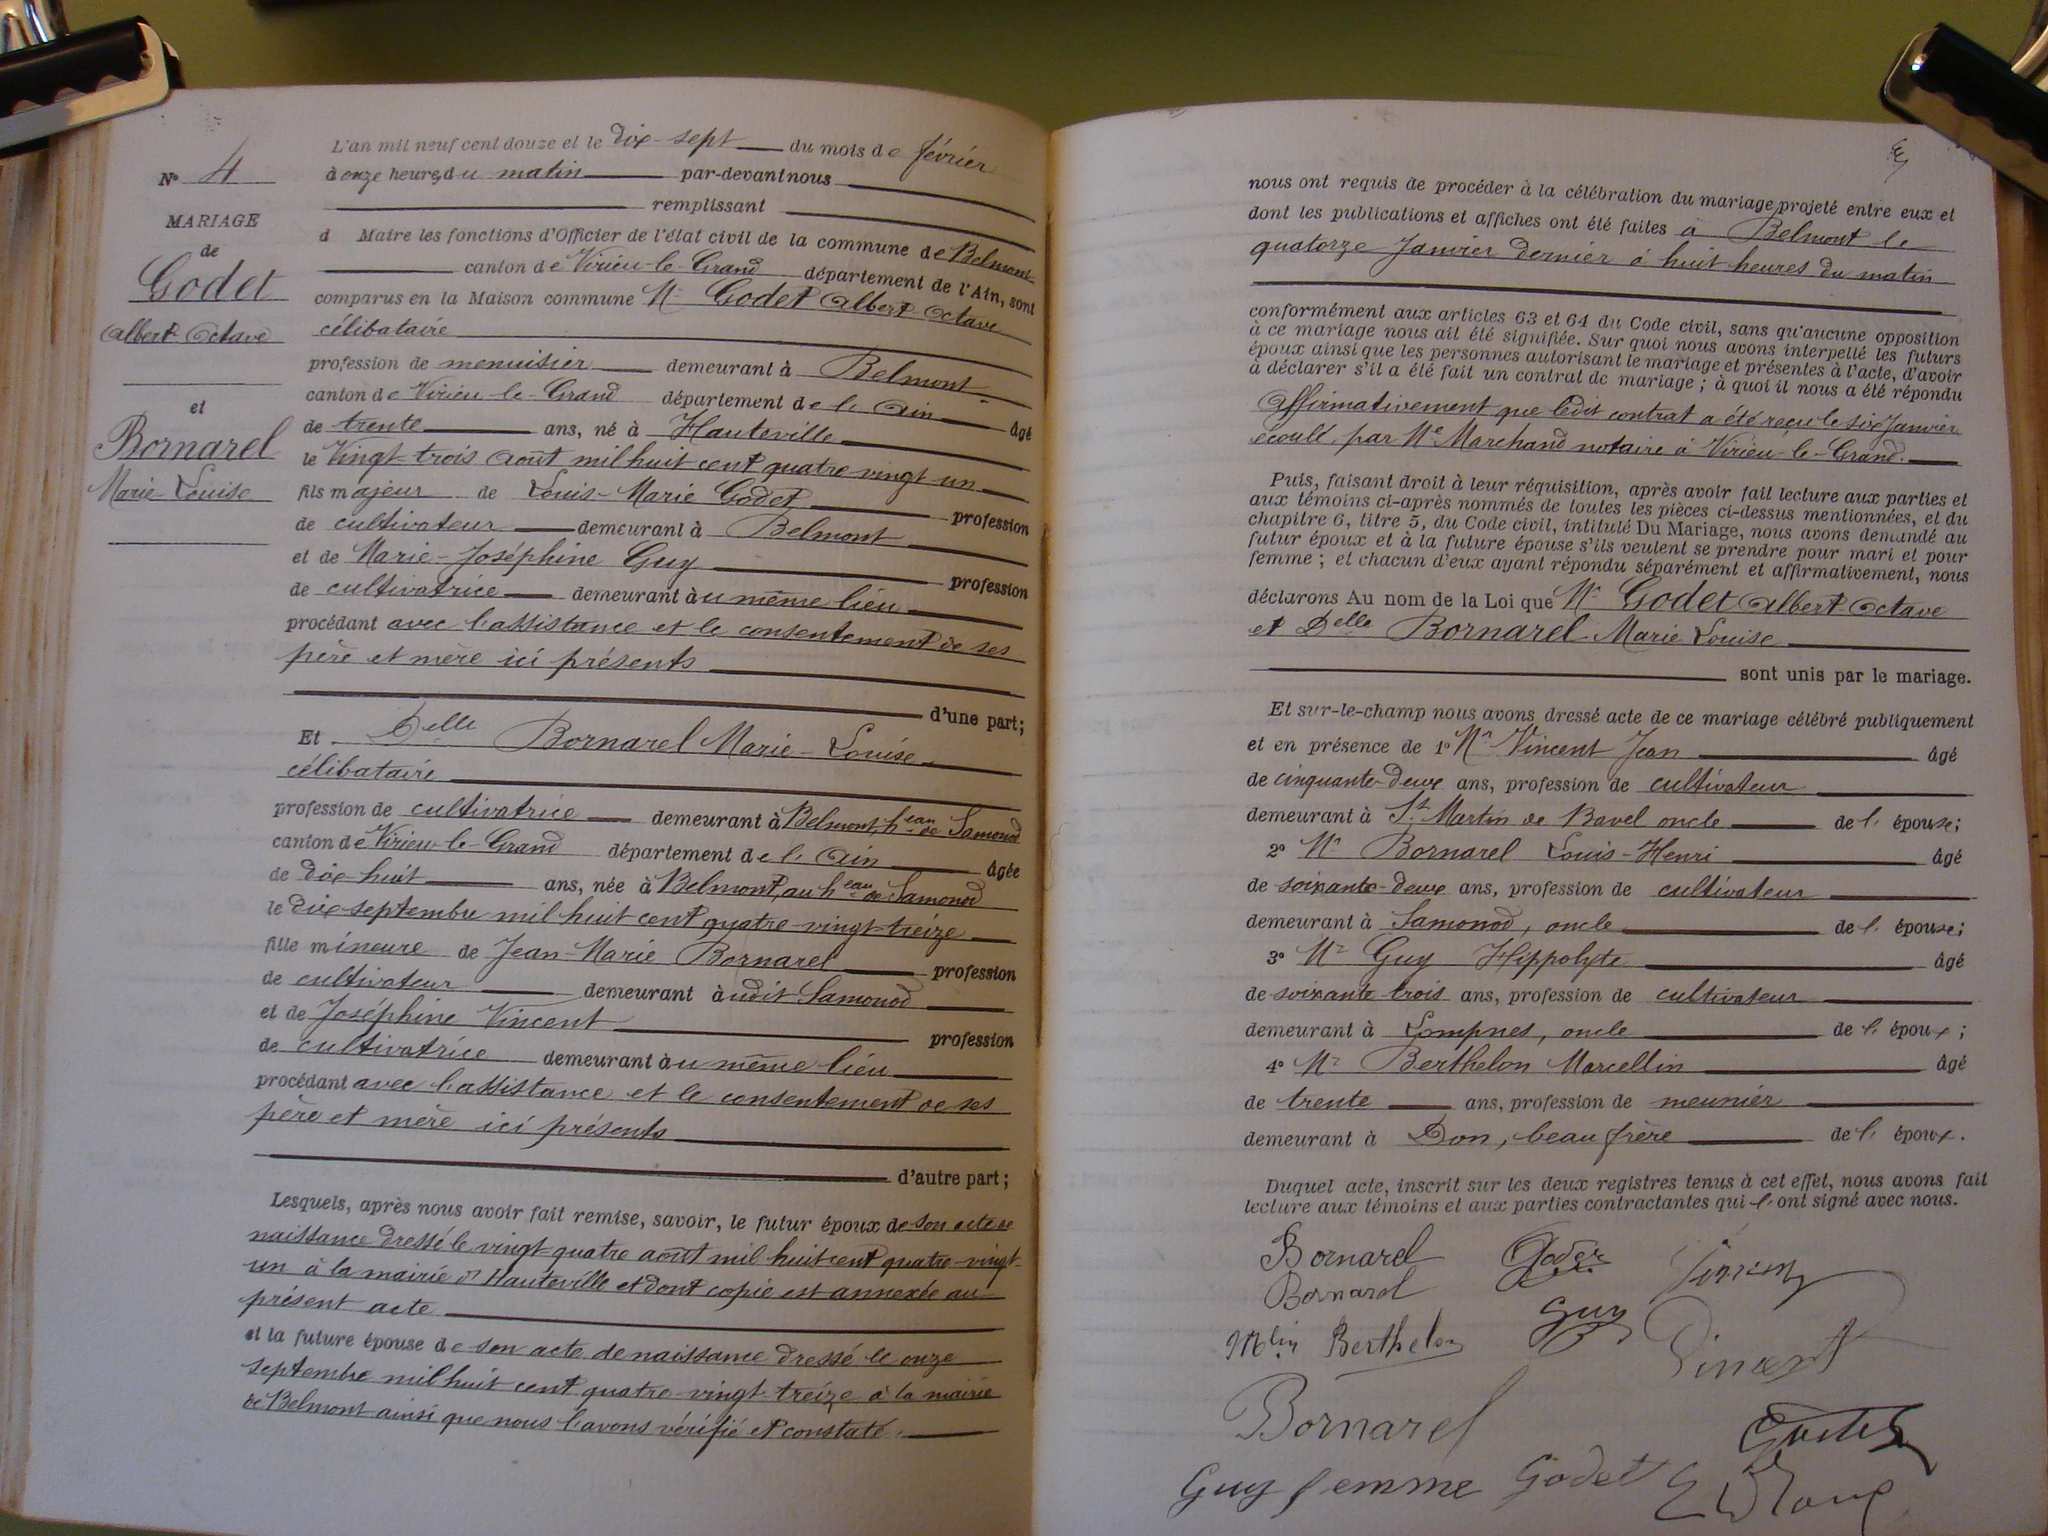 N° 4
MARIAGE
de
Godet
Albert Octave
et
Bornarel
Marie Louise
L'an mil neuf cent douze et le dix-sept du mois de février
à onze heures du matin par-devant nous
remplissant
d Maire les fonctions d'Officier de l'état civil de la commune de Belmont
canton de Virieu-le-Grand département de l'Ain, sont
comparus en la Maison commune Mr Godet Albert Octave
célibataire
profession de menuisier demeurant à Belmont
canton de Virieu-le-Grand département de l'Ain âgé
de trente ans, né à Hauteville
le Vingt-trois Août mil huit cent quatre-vingt-un
fils majeur de Louis-Marie Godet profession
de cultivateur demeurant à Belmont
et de Marie-Joséphine Guy profession
de cultivatrice demeurant au même lieu
procédant avec l'assistance et le consentement de ses
père et mère ici présents
d'une part;
Et Delle Bornarel Marie-Louise
célibataire
profession de cultivatrice demeurant à Belmont, heau de Samonod
canton de Virieu-le-Grand département de l'Ain âgée
de dix-huit ans, née à Belmont, au heau de Samonod
le dix septembre mil huit cent quatre-vingt-treize
fille mineure de Jean-Marie Bornarel profession
de cultivateur demeurant audit Samonod
et de Joséphine Vincent profession
de cultivatrice demeurant au même lieu
procédant avec l'assistance et le consentement de ses
père et mère ici présents
d'autre part;
Lesquels, après nous avoir fait remise, savoir, le futur époux de son acte de
naissance dressé le vingt-quatre août mil huit cent quatre-vingt-
un à la mairie d'Hauteville et dont copie est annexée au
présent acte
et la future épouse de son acte de naissance dressé le onze
septembre mil huit cent quatre-vingt-treize à la mairie
de Belmont ainsi que nous l'avons vérifié et constaté.
nous ont requis de procéder à la célébration du mariage projeté entre eux et
dont les publications et affiches ont été faites à Belmont le
quatorze Janvier dernier à huit heures du matin
conformément aux articles 63 et 64 du Code civil, sans qu'aucune opposition
à ce mariage nous ait été signifiée. Sur quoi nous avons interpellé les futurs
époux ainsi que les personnes autorisant le mariage et présentes à l'acte, d'avoir
à déclarer s'il a été fait un contrat de mariage; à quoi il nous a été répondu
Affirmativement que ledit contrat a été reçu le six Janvier
écoulé, par Me Marchand notaire à Virieu-le-Grand.
Puis, faisant droit à leur réquisition, après avoir fait lecture aux parties et
aux témoins ci-après nommés de toutes les pièces ci-dessus mentionnées, et du
chapitre 6, titre 5, du Code civil, intitulé Du Mariage, nous avons demandé au
futur époux et à la future épouse s'ils veulent se prendre pour mari et pour
femme; et chacun d'eux ayant répondu séparément et affirmativement, nous
déclarons Au nom de la Loi que Mr Godet Albert Octave
et Delle Bornarel Marie Louise
sont unis par le mariage.
Et sur-le-champ nous avons dressé acte de ce mariage célébré publiquement
et en présence de 1° Mr Vincent Jean âgé
de cinquante-deux ans, profession de cultivateur
demeurant à St Martin de Bavel oncle de l'épouse;
2° Mr Bornarel Louis-Henri âgé
de soixante-deux ans, profession de cultivateur
demeurant à Samonod, oncle de l'épouse;
3° Mr Guy Hippolyte âgé
de soixante trois ans, profession de cultivateur
demeurant à Lompnes, oncle de l'époux;
4° Mr Berthelon Marcellin âgé
de trente ans, profession de meunier
demeurant à Don, beau frère de l'époux.
Duquel acte, inscrit sur les deux registres tenus à cet effet, nous avons fait
lecture aux témoins et aux parties contractantes qui l'ont signé avec nous.
Bornarel Godet Vincent
Bornarel Guy
Mlin Berthelon Vincent
Bornarel
Guy femme Godet